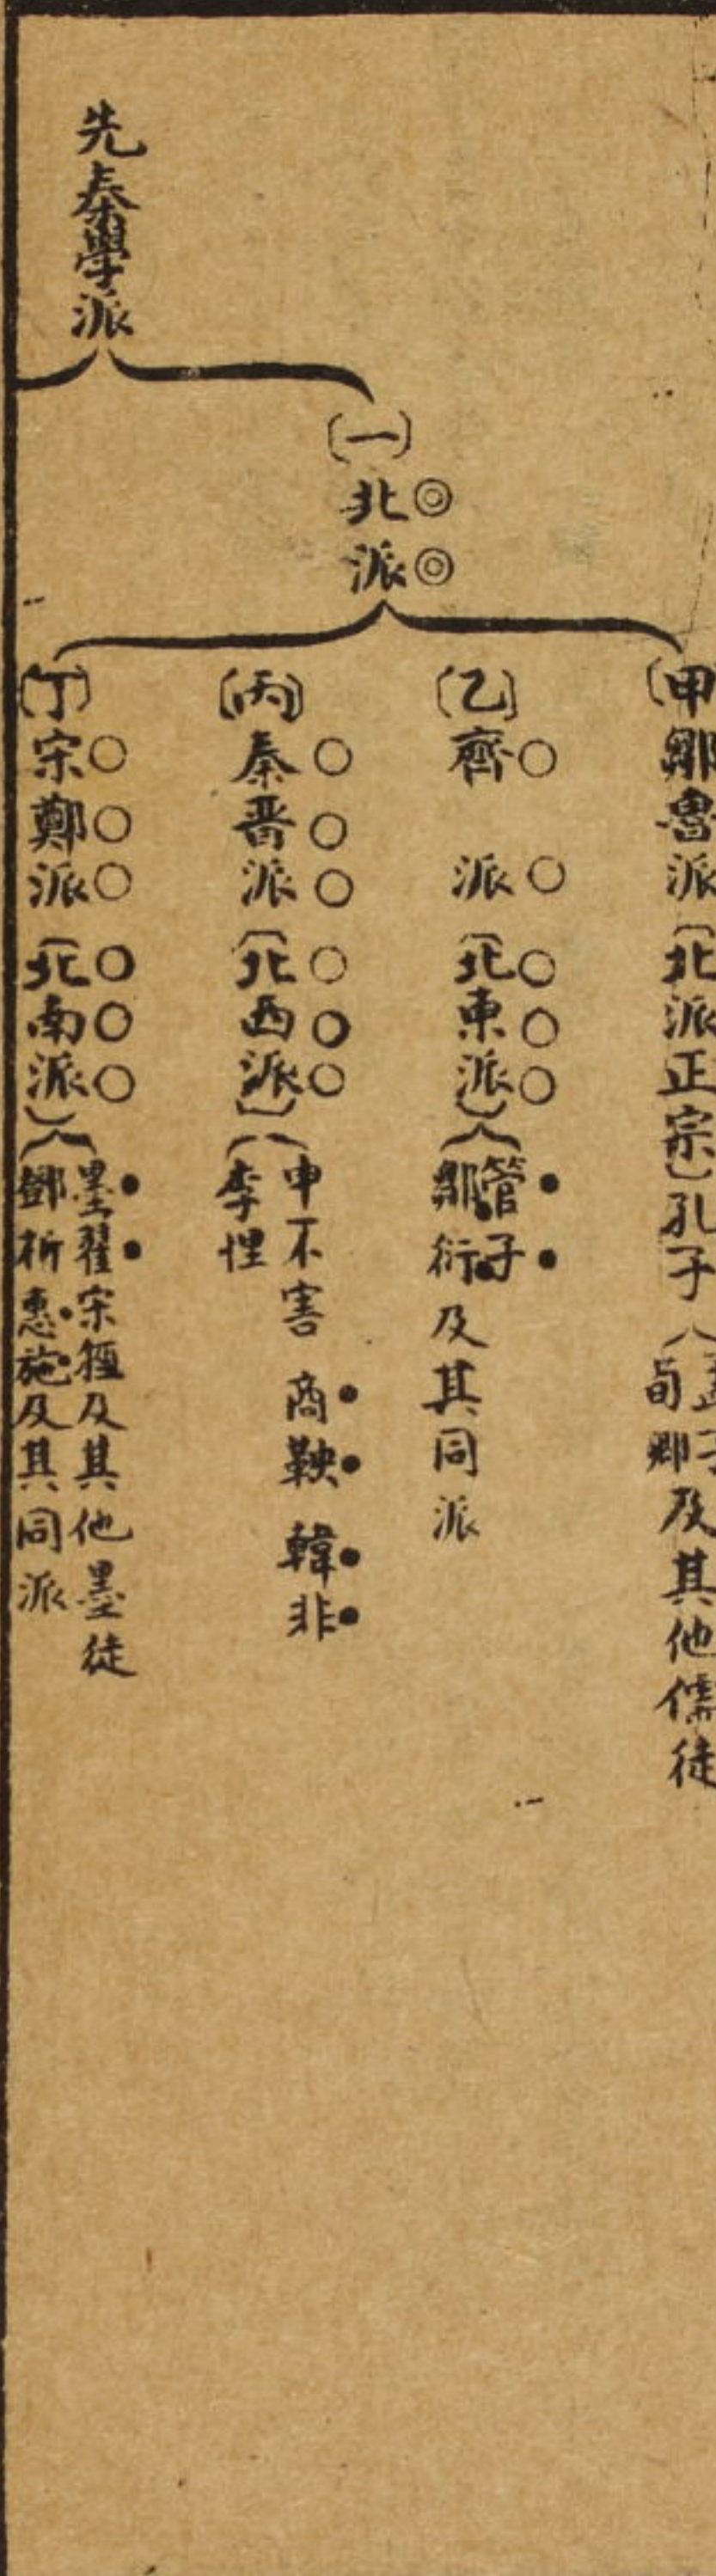 先秦學派
(一)北◎派◎
(甲)鄒魯派(北派正宗)孔子
孟子
荀卿及其他儒徒
(乙)齊○派○(北○東○派○)
管子
鄒衍及其同派
(丙)秦○晋○派○(北○西○派○)
申不害 商鞅 韓非
李悝
(丁)宋○鄭○派○(北○南○派○)
墨翟宋牼及其他墨徒
鄧析惠施及其同派